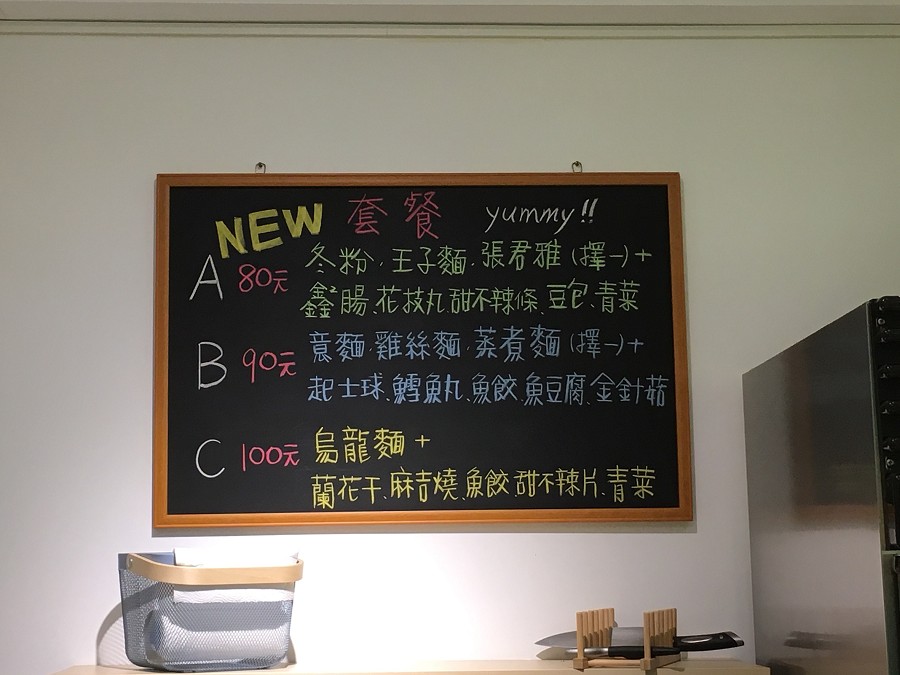 NEW 套餐 yummy!!
A 80元 冬粉、王子麵、張君雅(擇一)+
鑫鑫腸、花枝丸、甜不辣條、豆包、青菜
B 90元 意麵、雞絲麵、蒸煮麵(擇一)+
起士球、鱈魚丸、魚餃、魚豆腐、金針菇
C 100元 烏龍麵+
蘭花干、麻吉燒、魚餃、甜不辣片、青菜